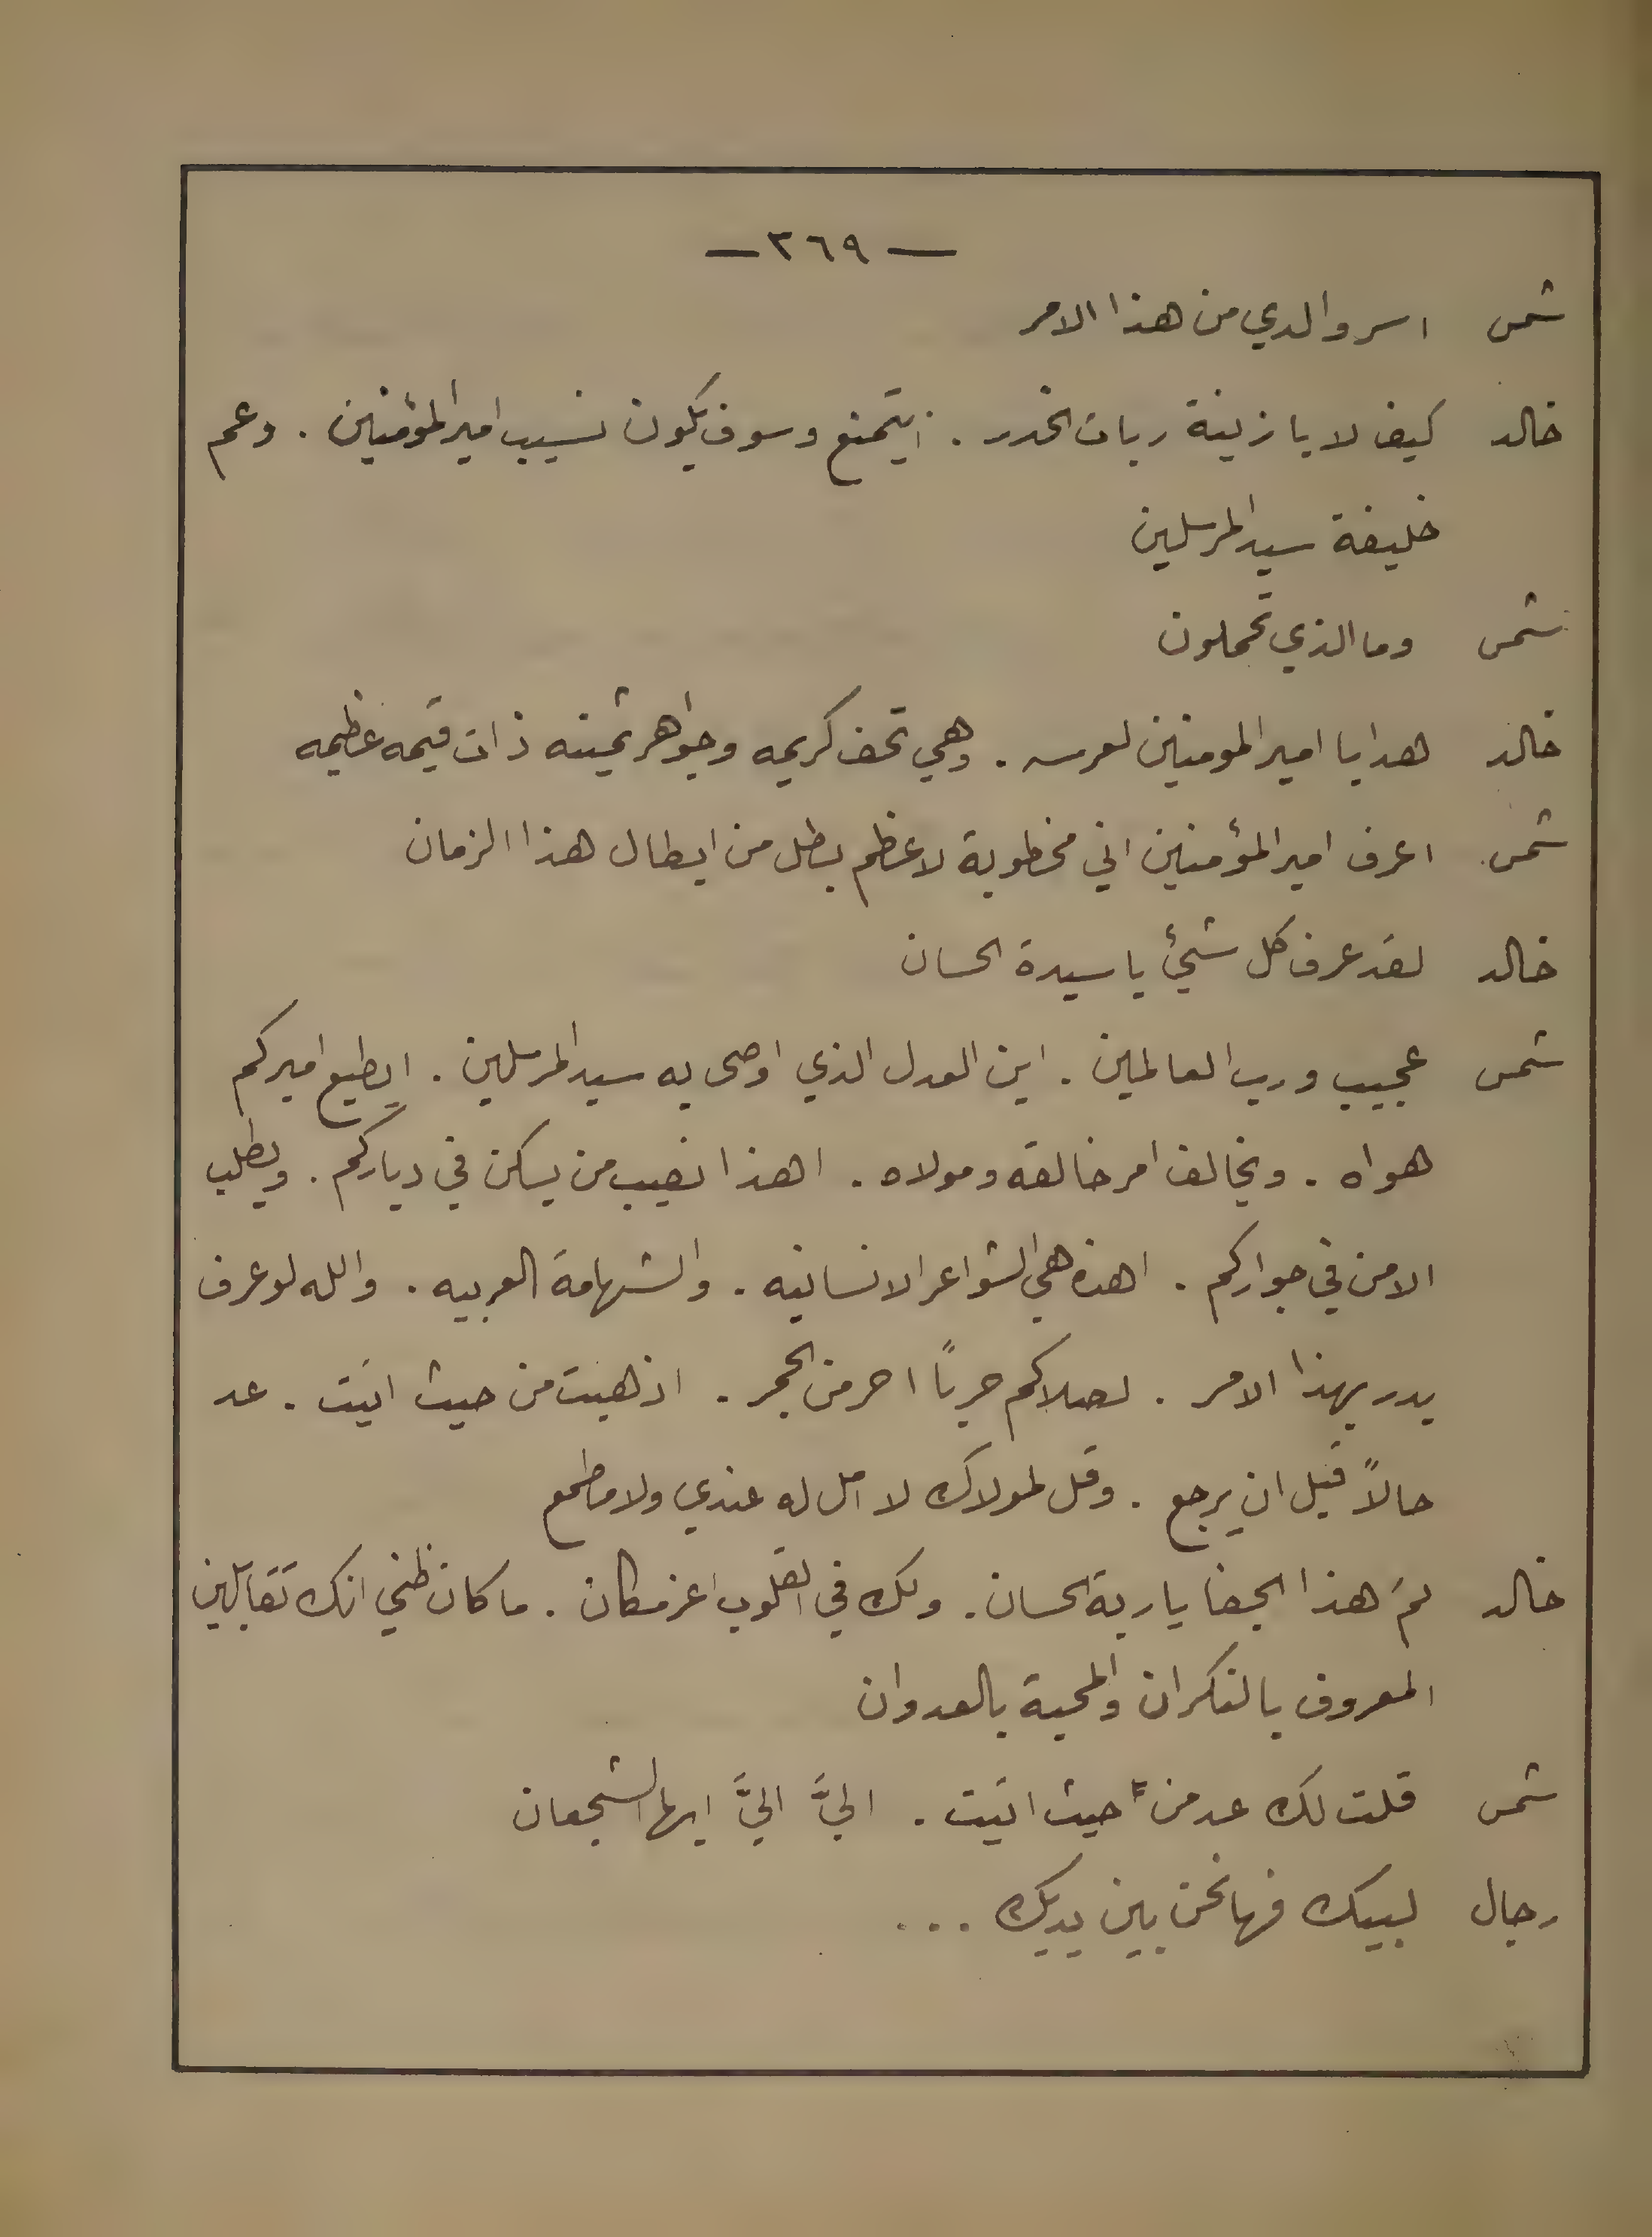 — ٣٦٩ —
شمس اسر والدي من هذا الامر
خالد كيف لا يا زينة ربات الخدر . ايتمنع وسوف يكون نسيب امير المؤمنين . وعم
خليفة سيد المرسلين
شمس وما الذي تحملون
خالد هدايا امير المومنين لعرسه . وهي تحف كريمه وجواهر ثمينه ذات قيمه عظيمه
شمس اعرف امير المؤمنين اني مخطوبة لاعظم بطل من ابطال هذا الزمان
خالد لقد عرف كل شيئ يا سيدة الحسان
شمس عجيب ورب العالمين . اين العدل الذي اوصى به سيد المرسلين . ايطيع اميركم
هواه . ويخالف امر خالقه ومولاه . اهذا نصيب من يسكن في دياركم . ويطلب
الامن في جواركم . اهذه هي الشواعر الانسانيه . والشهامة العربيه . والله لو عرف
بدر بهذا الامر . لصلاكم حربًا احر من الجمر . اذهبت من حيث اتيت . عد
حالاً قبل ان يرجع . وقل لمولاك لا امل له عندي ولا مطمع
خالد لمَ هذا الجفا يا ربة الحسان . ولك في القلوب اعز مكان . ما كان ظني انك تقابلين
المعروف بالنكران والمحبة بالعدوان
شمس قلت لك عد من حيث اتيت . اليَّ اليَّ ايها الشجعان
رجال لبيك فها نحن بين يديك ...